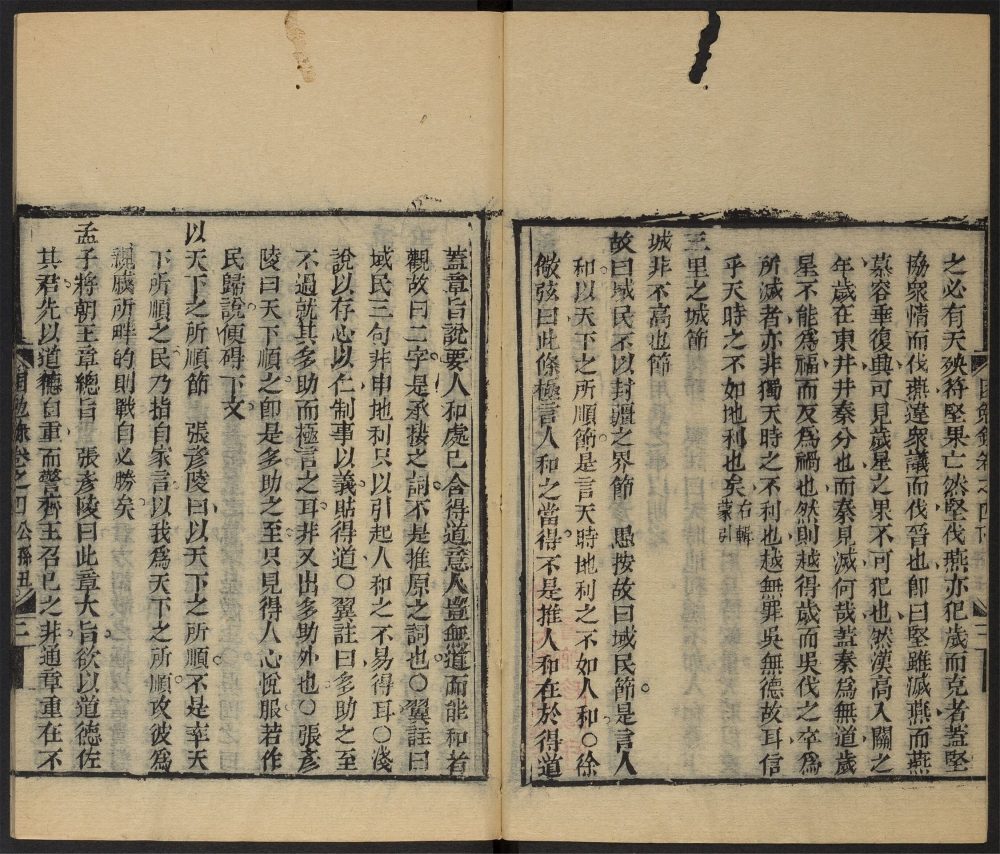 之必有天殃符堅果亡然堅伐燕亦犯歲而克者蓋堅
恊衆情而伐燕違衆議而伐晉也卽曰堅雖滅燕而燕
慕容垂復興可見歲星之果不可犯也然漢高入關之
年歲在東井井秦分也而秦見滅何哉蓋秦爲無道歲
星不能爲福而反爲禍也然則越得歲而吳伐之卒爲
所滅者亦非獨天時之不利也越無罪吳無德故耳信
乎天時之不如地利也矣右輯蒙引
三里之城節
城非不高也節
故曰域民不以封疆之界節 愚按故曰域民節是言人
和以天下之所順節是言天時地利之不如人和○徐
儆弦曰此條極言人和之當得不是推人和在於得道
蓋章旨說要人和處已含得道意人豈無道而能和者
觀故曰二字是承接之詞不是推原之詞也○翼註曰
域民三句非申地利只以引起人和之不易得耳○淺
說以存心以仁制事以義貼得道○翼註曰多助之至
不過就其多助而極言之耳非又出多助外也○張彥
陵曰天下順之卽是多助之至只見得人心悅服若作
民歸說便碍下文
以天下之所順節 張彥陵曰以天下之所順不是率天
下所順之民乃指自家言以我爲天下之所順攻彼爲
親戚所畔的則戰自必勝矣
孟子將朝王章總旨 張彥陵曰此章大旨欲以道德佐
其君先以道德自重而警齊王召已之非通章重在不
困勉錄卷之四公孫丑 三